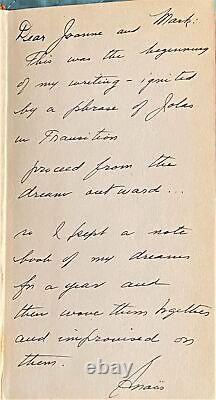 Dear Joanne and Mark:
This was the beginning
of my writing - ignited
by a phrase of Jolas
in Transition
proceed from the
dream outward...
so I kept a note
book of my dreams
for a year and
then wove them together
and improvised on
them.
Anaïs